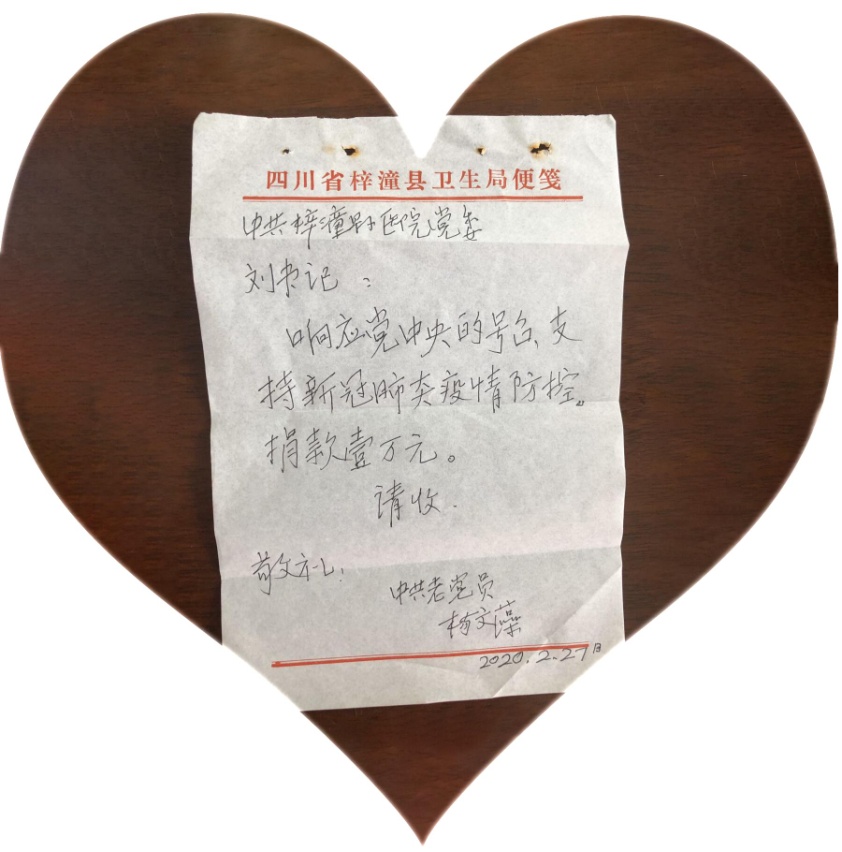 四川省梓潼县卫生局便笺
中共梓潼县医院党委
刘书记：
响应党中央的号召，支
持新冠肺炎疫情防控。
捐款壹万元。
请收.
敬礼!
中共老党员
杨文藻
2020.2.27日